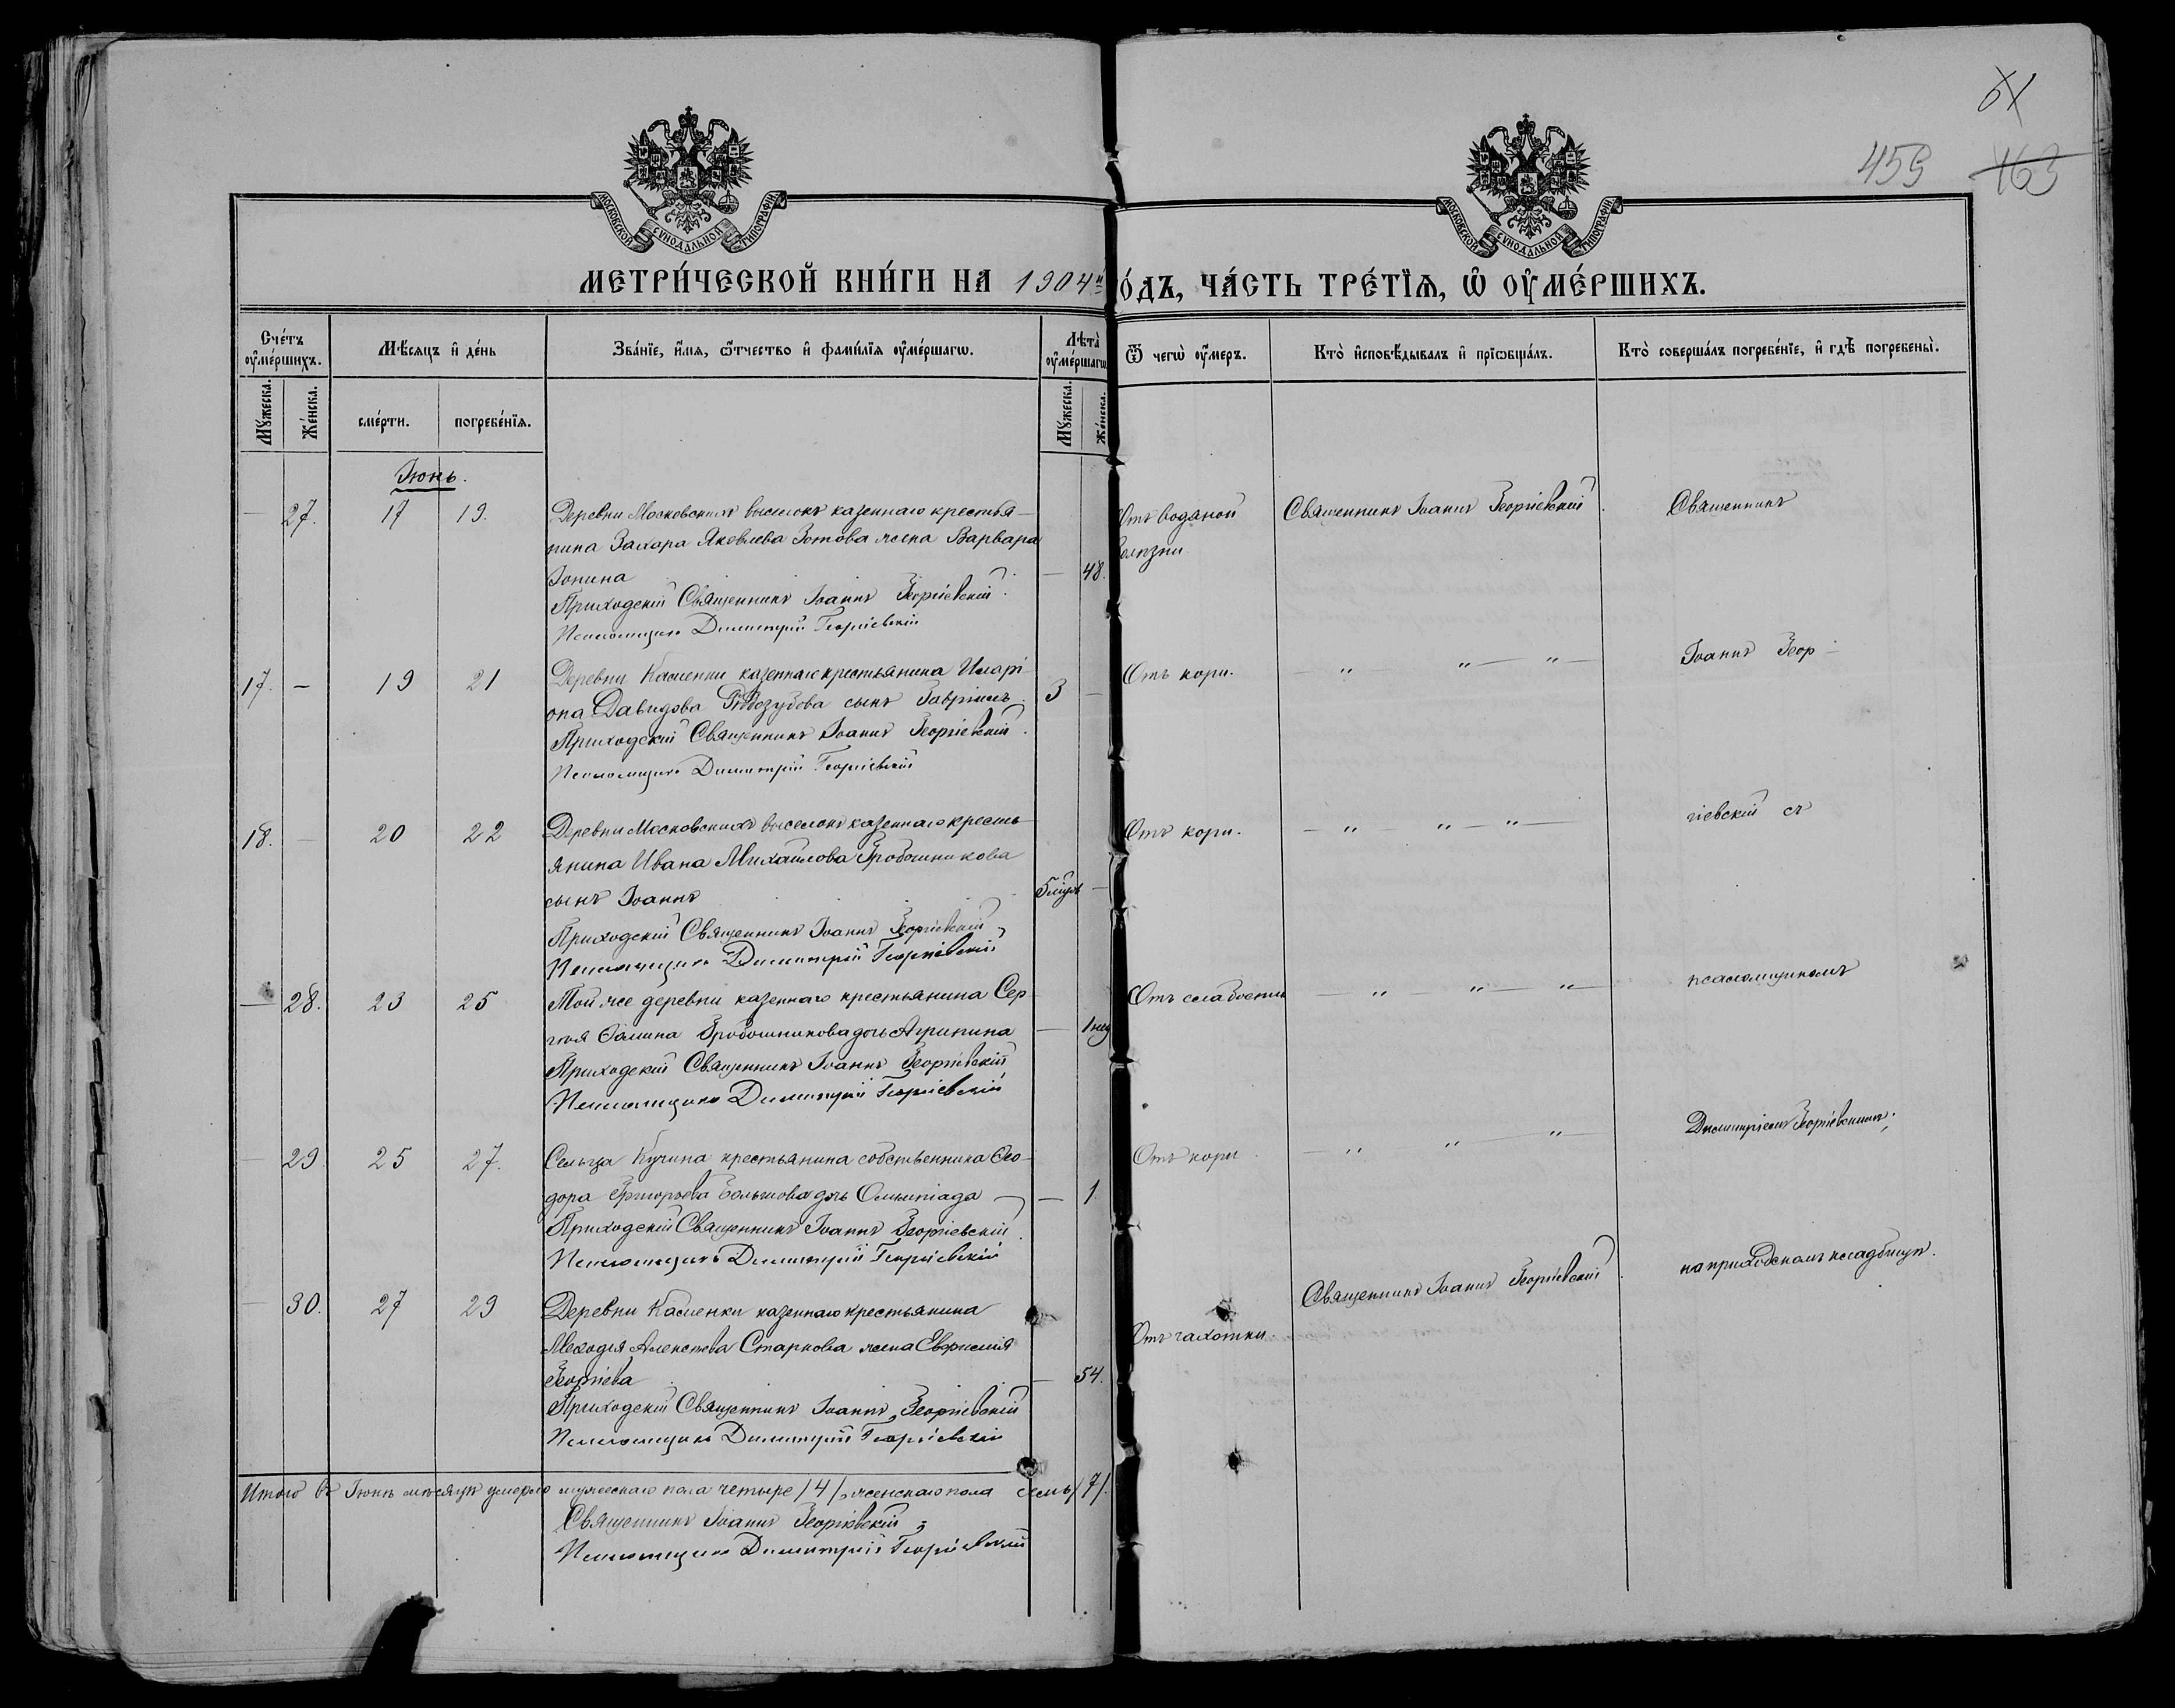 61
459 163
МОСКОВСКОЙ СѴНОДАЛЬНОЙ ТИПОГРАФІИ
МОСКОВСКОЙ СѴНОДАЛЬНОЙ ТИПОГРАФІИ
МЕТРИ́ЧЕСКОЙ КНИ́ГИ НА 1904й
О́ДЪ, ЧА́СТЬ ТРЕ́ТЇѦ, Ѡ҆ ОУ҆МЕ́РШИХЪ.
Сче́тъ оу҆ме́ршихъ.
Мѣ́сяцъ и҆ де́нь
Зва́нїе, и҆́мя, ѻ҆́тчество и҆ фами́лїя оу҆ме́ршагѡ.
Лѣта̀ оу҆ме́ршагѡ
Ѿ чегѡ̀ оу҆́меръ.
Кто̀ и҆сповѣ́дывалъ и҆ прїѡбща́лъ.
Кто̀ соверша́лъ погребе́нїе, и҆ гдѣ̀ погребены̀.
Мꙋ́жеска.
Же́нска.
сме́рти.
погребе́нїя.
Мꙋ́жеска.
Же́нска.
Іюнь.
— 27. 17 19. Деревни Московскихъ выселокъ казеннаго крестья-
нина Захара Яковлева Зотова жена Варвара
Іонина — 48.
Приходскій Священникъ Іоаннъ Георгіевскій.
Псаломщикъ Димитрій Георгіевскій
Отъ водяной
болѣзни
Священникъ Іоаннъ Георгіевскій.
Священникъ
17. — 19 21 Деревни Каменки казеннаго крестьянина Иларі-
она Давидова сынъ Гавріилъ. 3 —
Приходскій Священникъ Іоаннъ Георгіевскій.
Псаломщикъ Димитрій Георгіевскій
Отъ кори.
— „ „ — „ —
Іоаннъ Геор-
18. — 20 22 Деревни Московскихъ выселокъ казеннаго кресть-
янина Ивана Михайлова Гробошникова
сынъ Іоаннъ 5 мѣся —
Приходскій Священникъ Іоаннъ Георгіевскій
Псаломщикъ Димитрій Георгіевскій
Отъ кори.
— „ „ — „ —
гіевскій съ
— 28. 23 25 Той же деревни казеннаго крестьянина Сер-
гѣя Ѳомина Гробошникова дочь Агрипина — 1 нед
Приходскій Священникъ Іоаннъ Георгіевскій
Псаломщикъ Димитрій Георгіевскій
Отъ слабости
— „ — „ — „ —
псаломщикомъ
— 29. 25 27. Сельца Кучина крестьянина собственника Ѳео-
дора Григорьева дочь Олимпіада — 1.
Приходскій Священникъ Іоаннъ Георгіевскій.
Псаломщикъ Димитрій Георгіевскій
Отъ кори
— „ „ — „ —
Димитріемъ Георгіевскимъ;
— 30. 27 29 Деревни Каменки казеннаго крестьянина
Меѳодія Алексѣева Старкова жена Евфимія
Георгіева — 54.
Приходскій Священникъ Іоаннъ Георгіевскій
Псаломщикъ Димитрій Георгіевскій
Отъ чахотки.
Священникъ Іоаннъ Георгіевскій.
на приходскомъ кладбищѣ.
Итого въ Іюнѣ мѣсяцѣ умерло мужескаго пола четыре /4/, женскаго пола семь /7/.
Священникъ Іоаннъ Георгіевскій;
Псаломщикъ Димитрій Георгіевскій